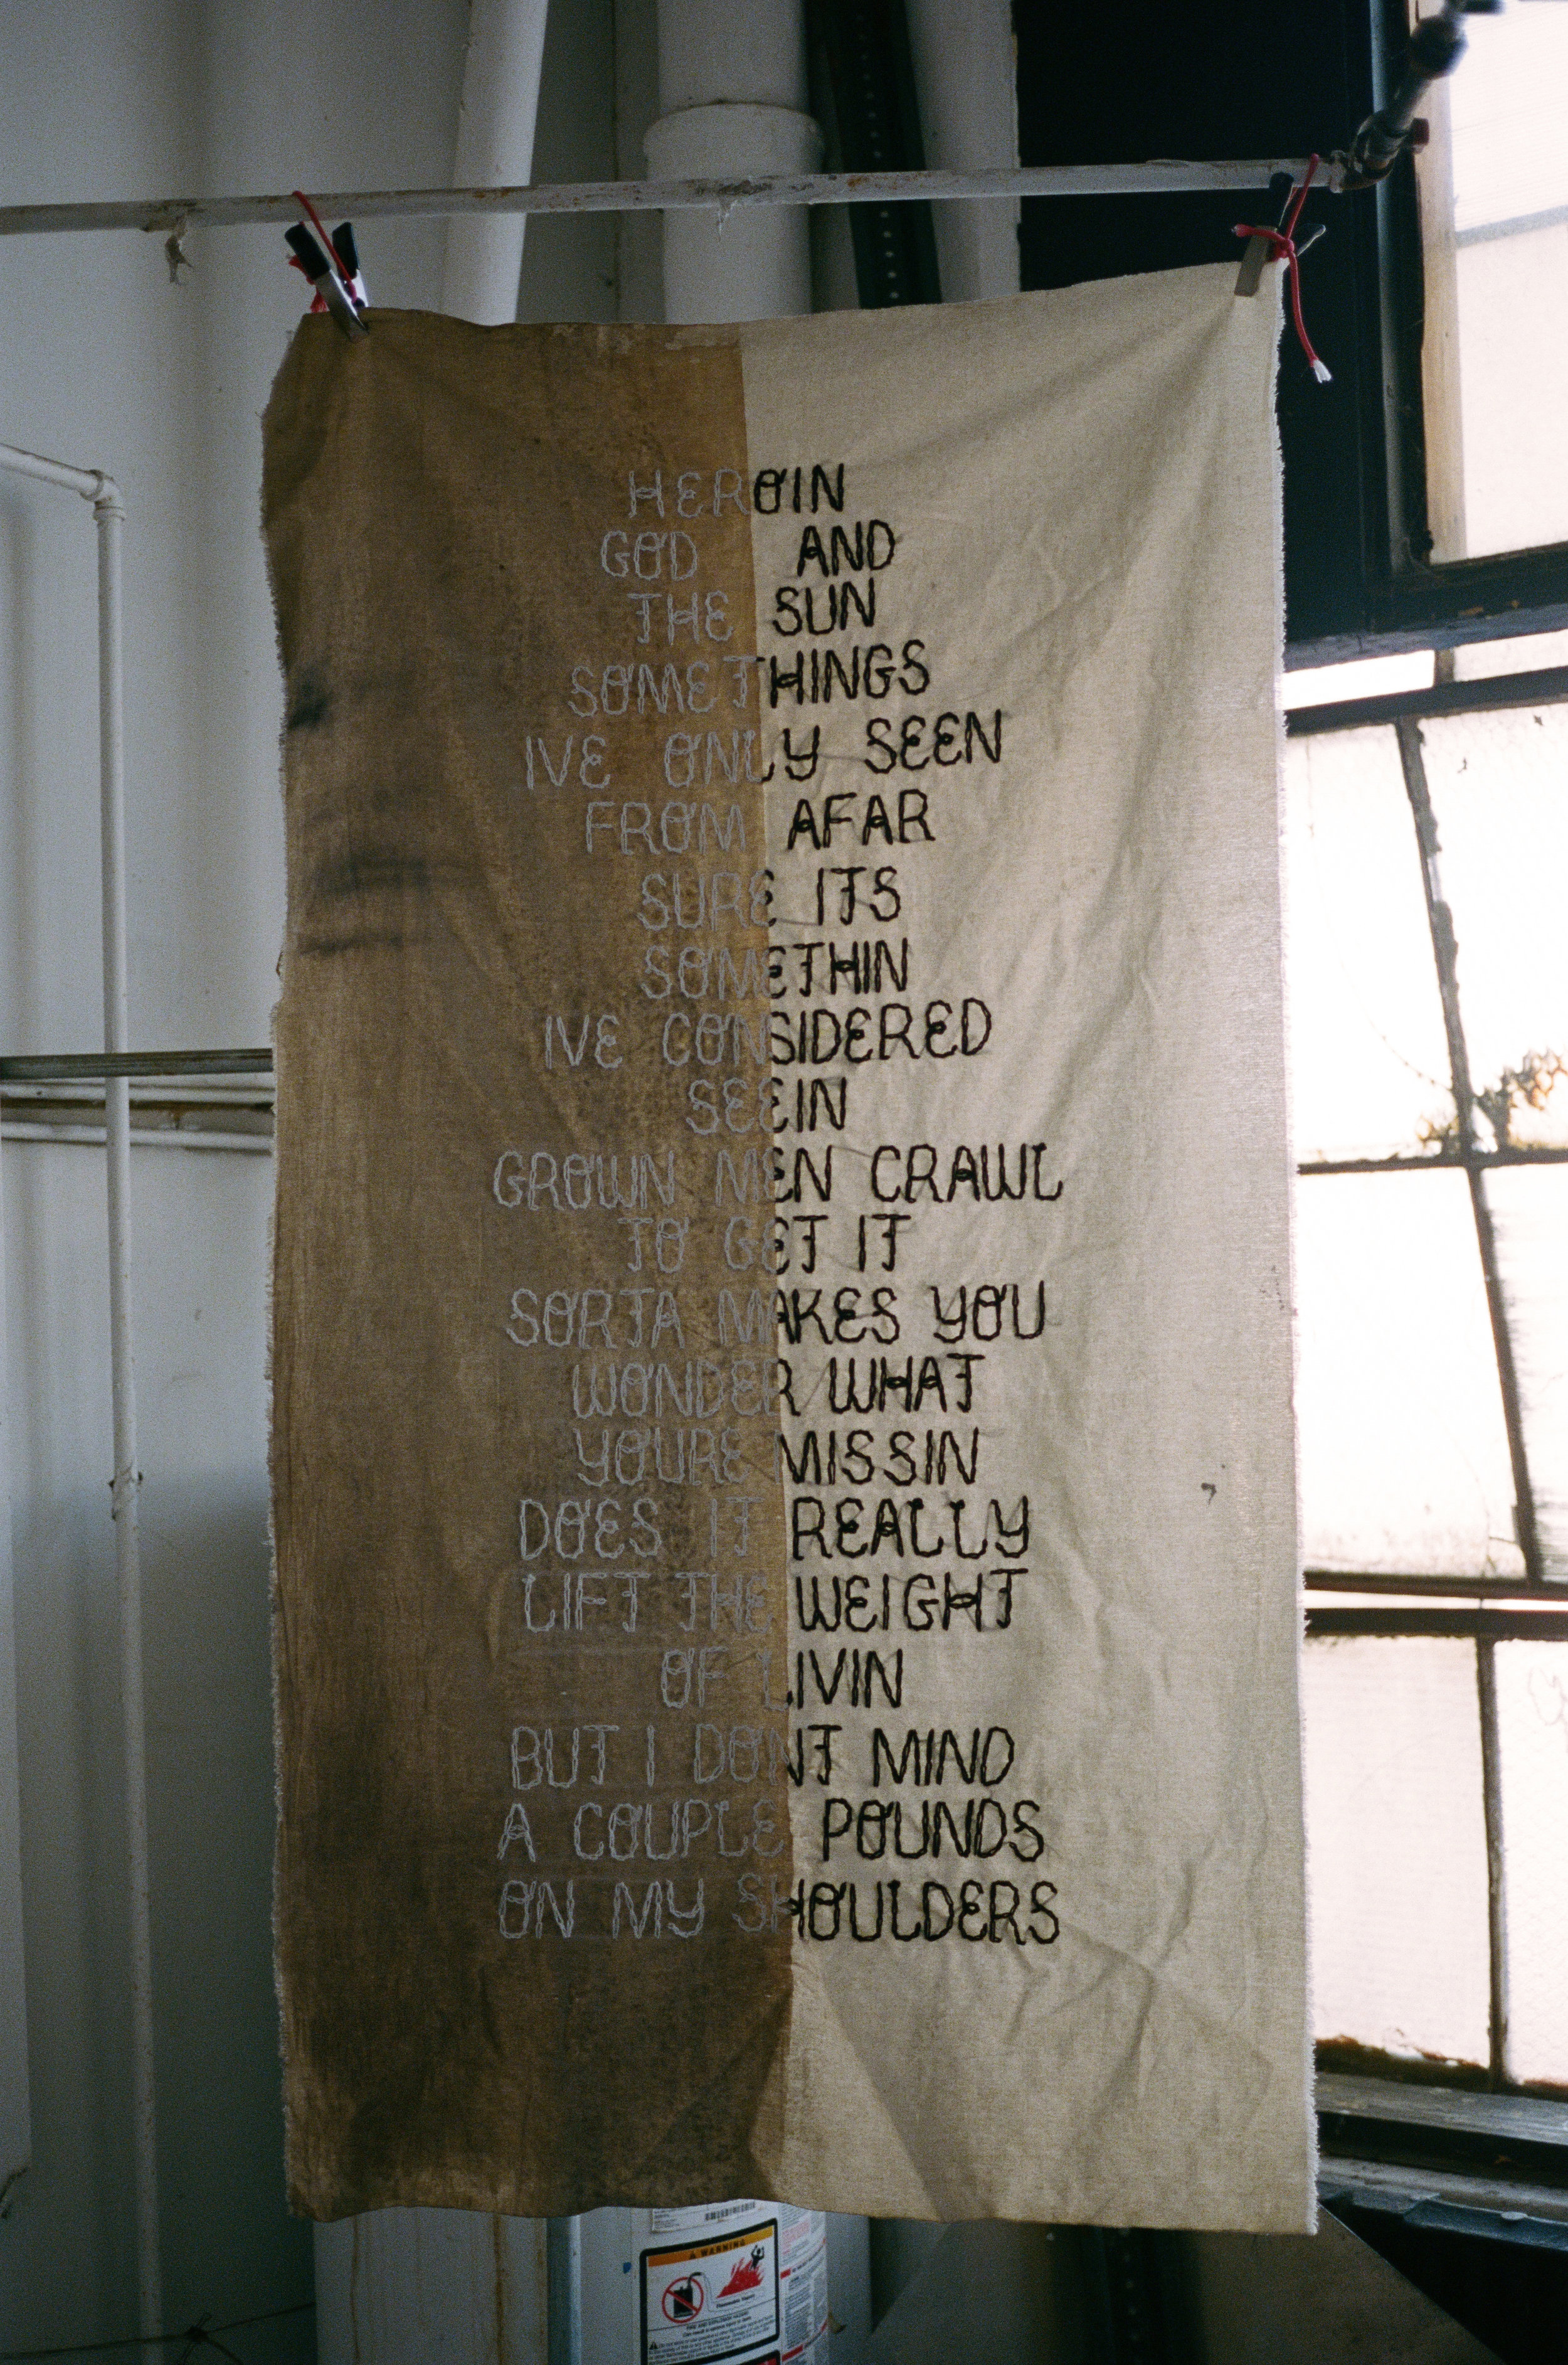 HEROIN
GOD AND
THE SUN
SOMETHINGS
IVE ONLY SEEN
FROM AFAR
SURE ITS
SOMETHIN
IVE CONSIDERED
SEEIN
GROWN MEN CRAWL
TO GET IT
SORTA MAKES YOU
WONDER WHAT
YOURE MISSIN
DOES IT REALLY
LIFT THE WEIGHT
OF LIVIN
BUT I DONT MIND
A COUPLE POUNDS
ON MY SHOULDERS
WARNING